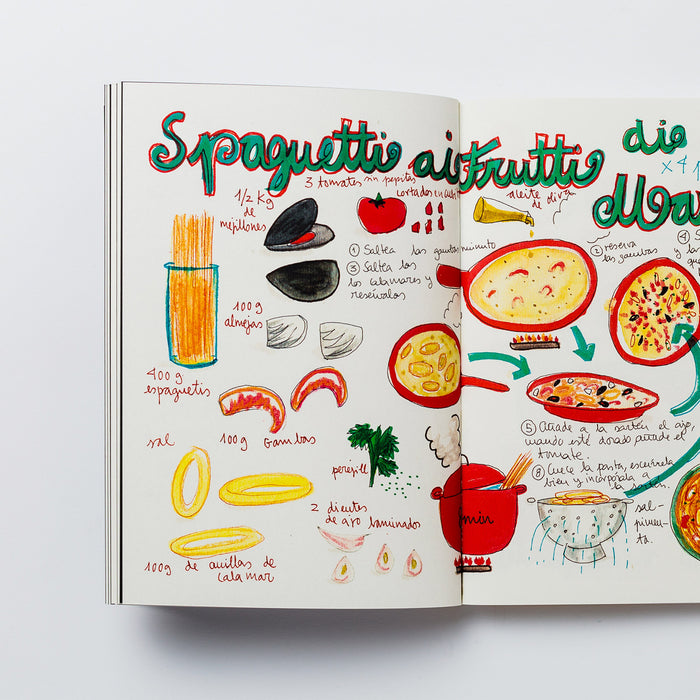 Spaguetti ai Frutti di
Mar
x 4
1/2 Kg
de
mejillones
3 tomates sin pepitas
cortados en
aceite de oliva
① Saltea las gambas minuto
③ Saltea los
los calamares y
resérvalos
② reserva
las gambas
④ S
y la
que
100g
almejas
400 g
espaguetis
sal
100g Gambas
perejil
2 dientes
de ajo laminados
100g de anillas de
calamar
⑤ Añade a la sartén el ajo,
cuando esté dorado añade el
tomate.
⑧ Cuece la pasta, escúrrela
bien y incorpórala a
la sartén.
sal
pimien-
ta.